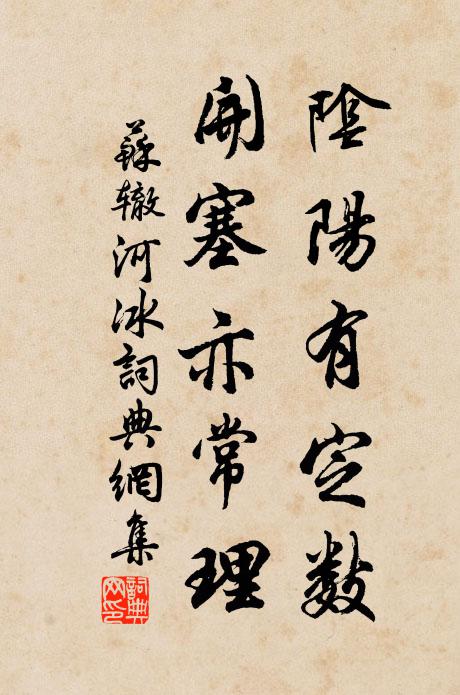 陰陽有定数
開塞亦常理
蘇辙河冰詞典網集
詞典
网印